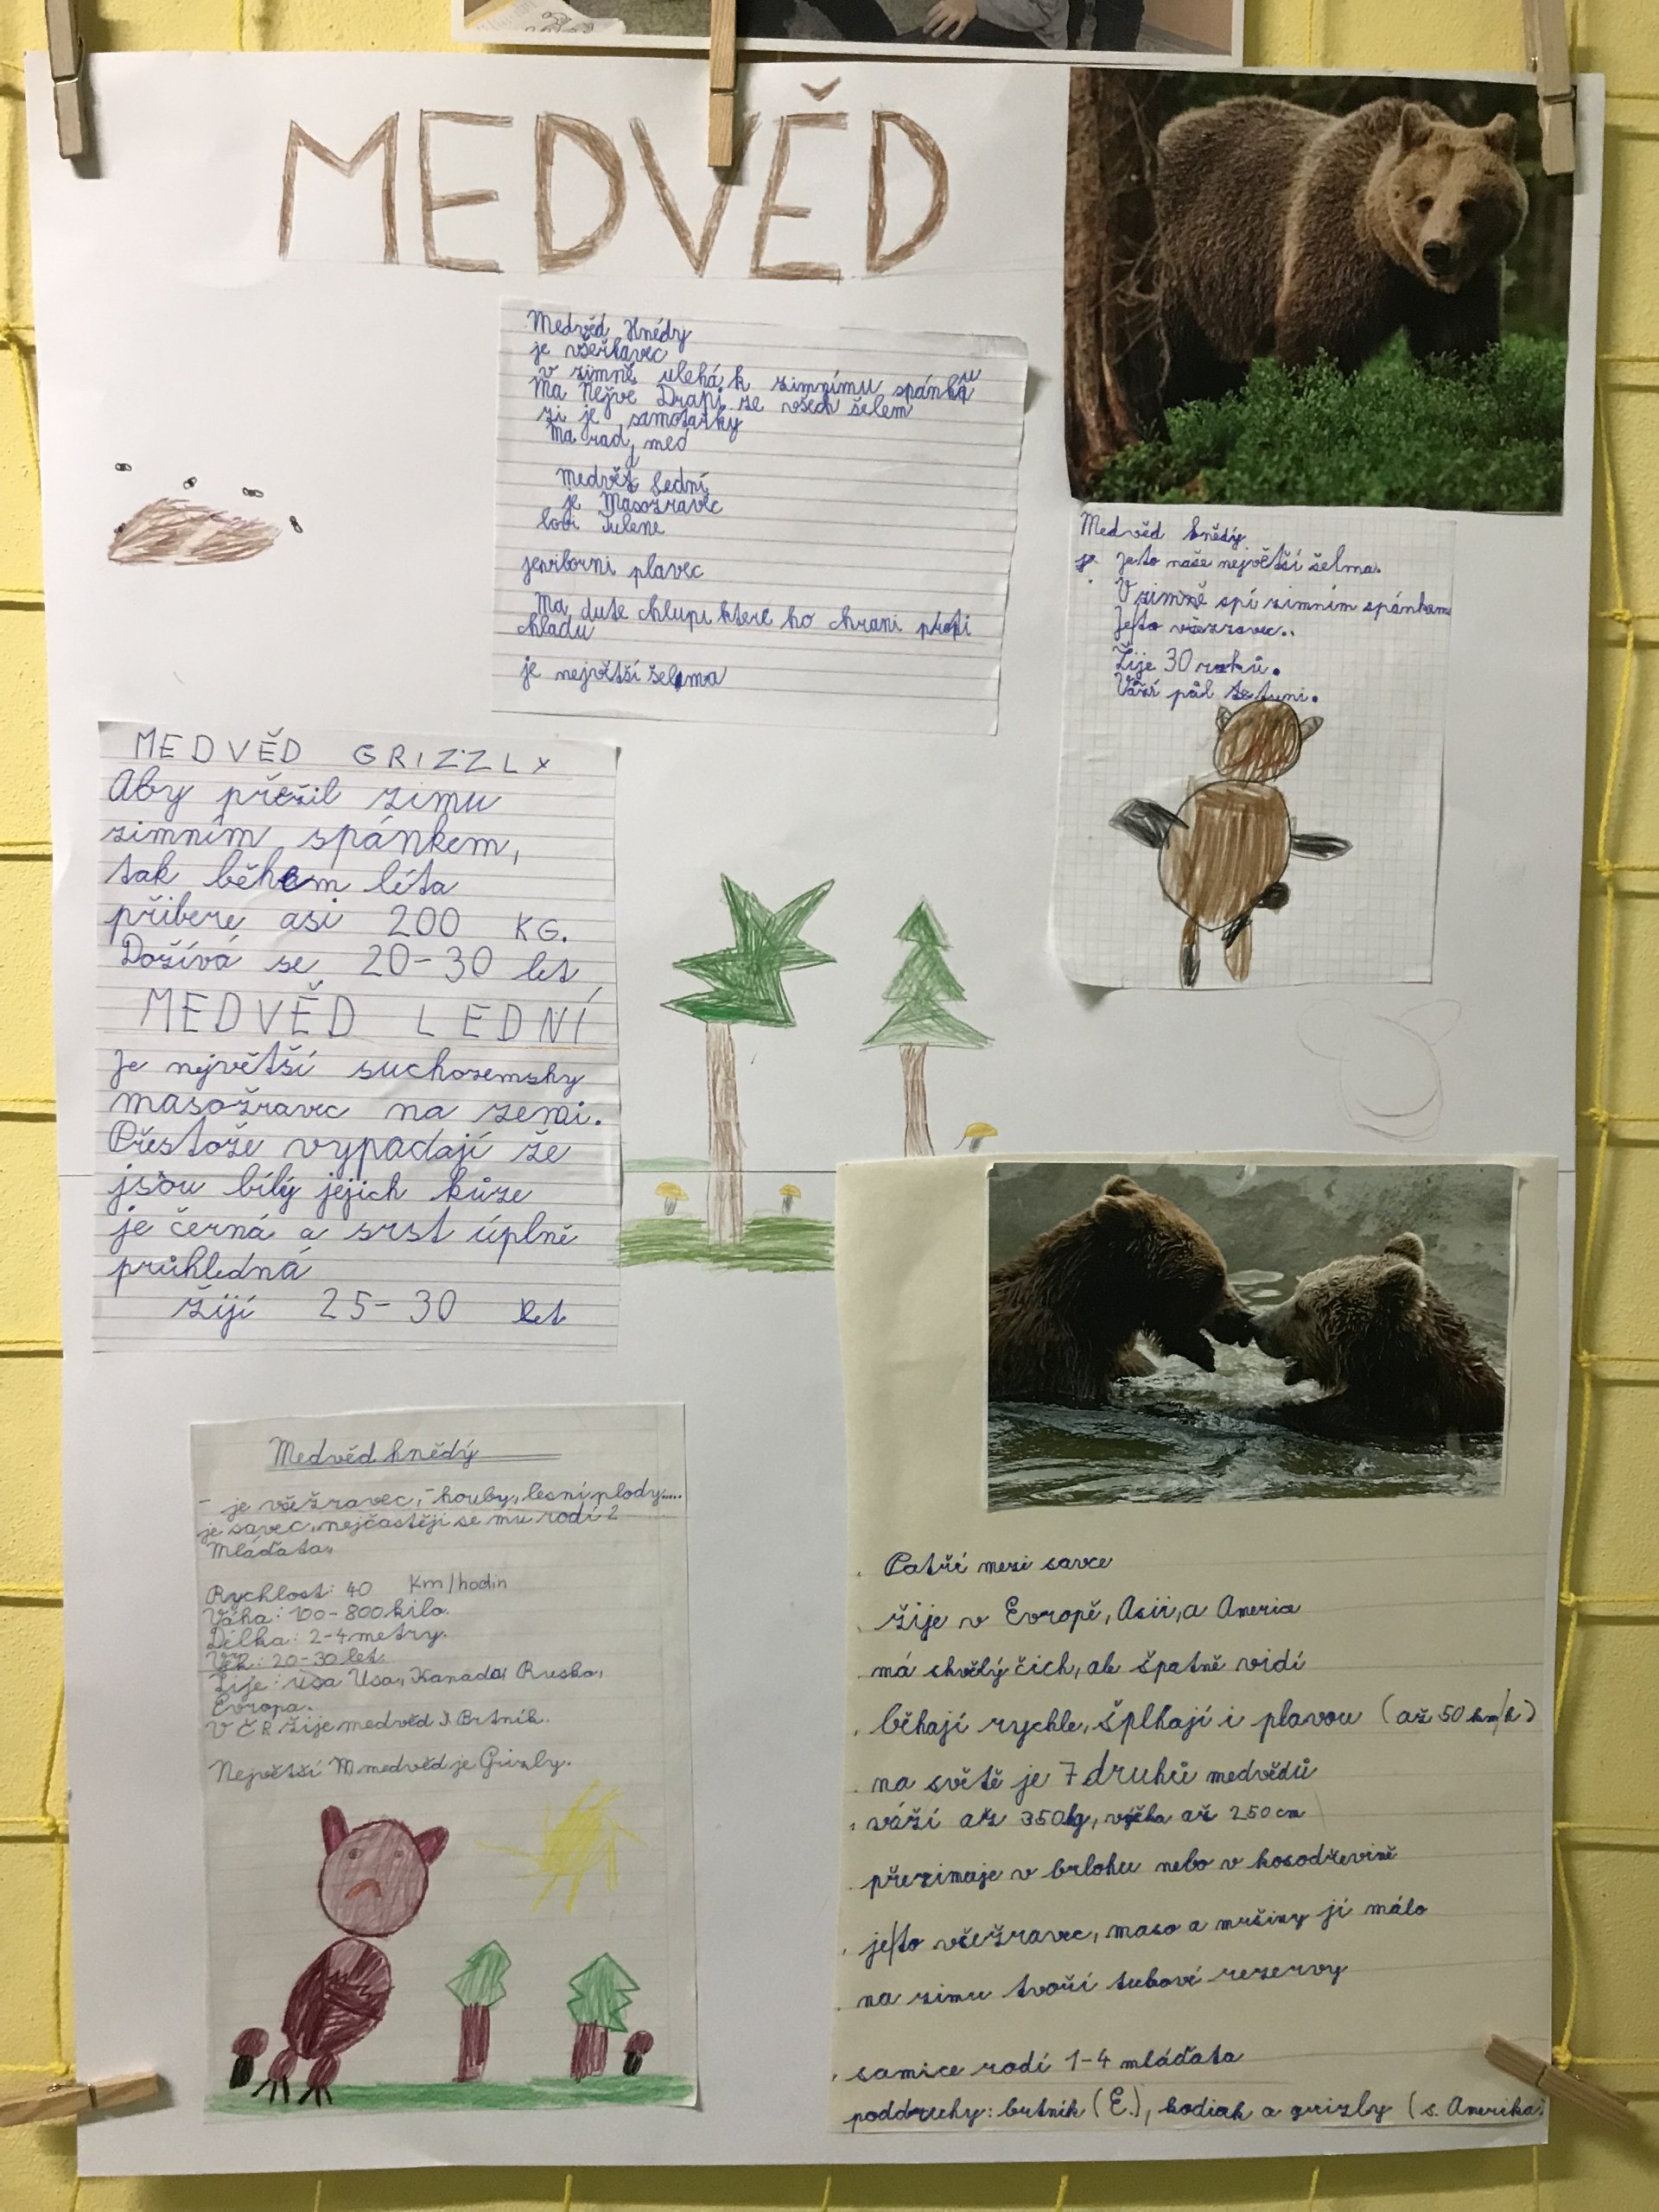 MEDVĚD
Medvěd Hnédy
je všeřlavec
v zimně ulehá k zimnímu spánku
Ma Nejvě Drapi ze všech šelem
zi je samotařky
Ma rad med
Medvěd Lední
je Masožravec
lovi Tulene
jeviborni plavec
Ma dute chlupi ktere ho chrani proti
chladu
je největší šelma
Medvěd hnědý
je Jeto naše největší šelma.
V zimně spí zimním spánkem
Jeto všezravec.
Žije 30 roků.
Váží půl tuni.
MEDVĚD GRIZZLY
Aby přežil zimu
zimním spánkem,
tak během léta
přibere asi 200 KG.
Dožívá se 20-30 let
MEDVĚD LEDNÍ
Je největší suchozemsky
masožravec na zemi.
Přestože vypadají že
jsou bílý jejich kůze
je černá a srst úplně
průhledná
žijí 25-30 let
Medvěd hnědý
- je všežravec,-houby, lesní plody.....
je savec, nejčastěji se mu rodí 2
Mláďata,
Rychlost: 40 Km/hodin
Váha: 100-800 kilo.
Délka: 2-4 metry.
Věk: 20-30 let.
Žije: usa Usa, Kanada, Rusko,
Evropa.
V ČR žije medvěd J. Brtník.
Největší M medvěd je Grizly.
. Patří mezi savce
. žije v Evropě, Asii, a Americe
. má skvělý čich, ale špatně vidí
. běhají rychle, šplhají i plavou (až 50 km/h)
. na světě je 7 druhů medvědů
. váží až 350kg, výška až 250 cm
. přezimuje v brlohu nebo v kosodřevině
. jeto všežravec, maso a mršiny jí málo
. na zimu tvoří tukové rezervy
. samice rodí 1-4 mláďata
poddruhy: brtník (E.), kodiak a grizly (s. Amerika)